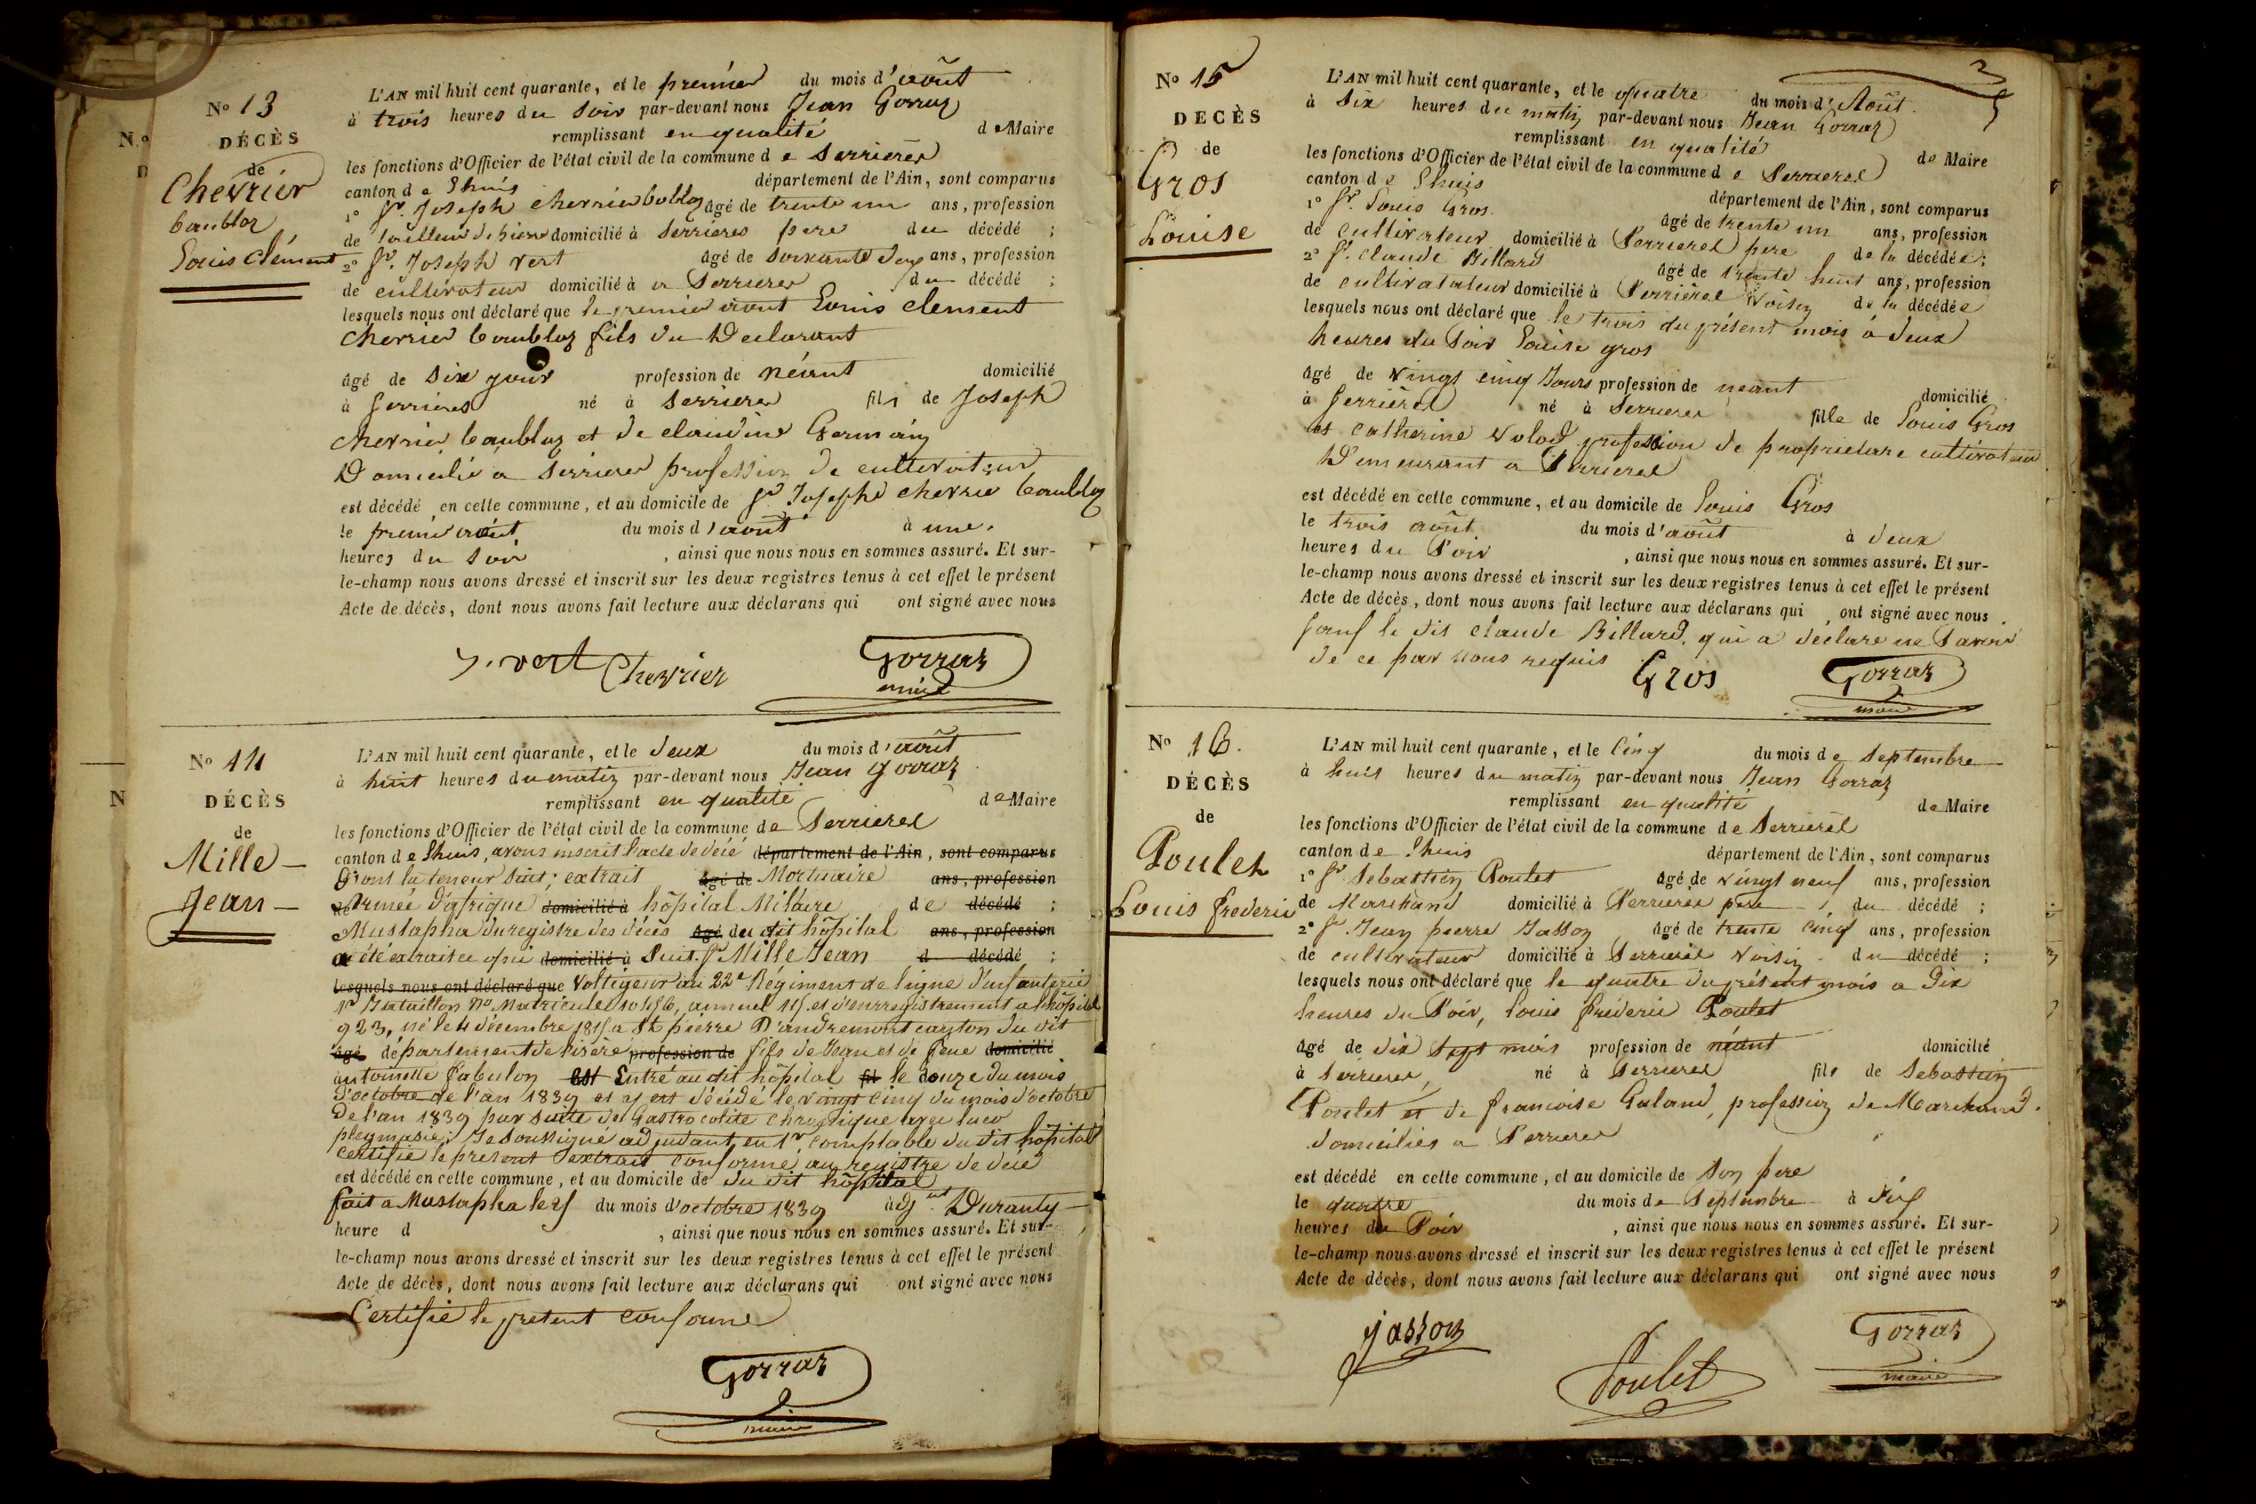 N° 13
DÉCÈS
de
Chevrier
Caubloz
Louis Clément
L'AN mil huit cent quarante, et le premier du mois d'août
à trois heures du Soir par-devant nous Jean Gorraz
remplissant en qualité de Maire
les fonctions d'Officier de l'état civil de la commune de Serrieres
canton de Lhuis département de l'Ain, sont comparus
1° Sr. Joseph Chevrier Caubloz âgé de trente un ans, profession
de tailleur de pierre domicilié à Serrieres pere du décédé ;
2° Sr. Joseph Vert âgé de soixante deux ans, profession
de cultivateur domicilié à a Serrieres du décédé ;
lesquels nous ont déclaré que le premier août Louis Clement
Chevrier Caubloz fils du Declarant
âgé de Six jours profession de néant domicilié
à Serrieres né à Serrieres fils de Joseph
Chevrier Caubloz et de claudine Germain
Domicilié a Serrieres profession de cultivateur
est décédé en cette commune, et au domicile de Sr Joseph Chevrier Caubloz
le premier août du mois d'août à une
heures du Soir, ainsi que nous nous en sommes assuré. Et sur-
le-champ nous avons dressé et inscrit sur les deux registres tenus à cet effet le présent
Acte de décès, dont nous avons fait lecture aux déclarans qui ont signé avec nous
J. vert Chevrier Gorraz
maire
N° 14
DÉCÈS
de
Mille
Jean
L'AN mil huit cent quarante, et le deux du mois d'août
à huit heures du matin par-devant nous Jean Gorraz
remplissant en qualité de Maire
les fonctions d'Officier de l'état civil de la commune de Serrieres
canton de Lhuis, avons inscrit l'acte de décé département de l'Ain, sont comparus
Dont la teneur Suit; extrait âgé de Mortuaire ans, profession
de Armée d'afrique domicilié à hôpital Militaire de décédé ;
Mustapha du registre des décès âgé du dit hôpital ans, profession
a été extrait ce qui domicilié à Suit. Sr Mille Jean d décédé ;
lesquels nous ont déclaré que Voltigeur au 22e Régiment de ligne d'infanterie
1er Bataillon No Matricule annuel et d'enregistrement a l'hôpital
923, né le 4 décembre a St pierre D'andremont canton du dit
âgé département de l'isère profession de fils de Jean et de feue domicilié
antoinette Sabulon est Entré au dit hôpital fil le douze du mois
d'octobre de l'an 1839 et y est décédé le vingt cinq du mois d'octobre
De l'an 1839 par suite de Gastro colite chronique avec
Je Soussigné adjudant en 1er comptable du dit hôpital
certifie le présent extrait conforme au registre de décé
est décédé en cette commune, et au domicile de du dit hôpital
fait a Mustapha le du mois d'octobre 1839 à adj Duranty
heure d, ainsi que nous nous en sommes assuré. Et sur-
le-champ nous avons dressé et inscrit sur les deux registres tenus à cet effet le présent
Acte de décès, dont nous avons fait lecture aux déclarans qui ont signé avec nous
Certifié le present conforme
Gorraz
maire
N° 15
DÉCÈS
de
Gros
Louise
L'AN mil huit cent quarante, et le quatre du mois d'Août
à Six heures du matin par-devant nous Jean Gorraz
remplissant en qualité de Maire
les fonctions d'Officier de l'état civil de la commune de Serrieres
canton de Lhuis département de l'Ain, sont comparus
1° Sr. Louis Gros âgé de trente un ans, profession
de cultivateur domicilié à Serrieres pere de la décédée ;
2° Sr. Claude Billard âgé de trente huit ans, profession
de cultivatateur domicilié à Serrieres Voisin de la décédée
lesquels nous ont déclaré que le trois du présent mois à deux
heures du Soir Louise gros
âgé de vingt cinq Jours profession de neant domicilié
à Serrieres né à Serrieres fille de Louis Gros
et Catherine profession de proprietare cultivateur
Demeurant a Serrieres
est décédé en cette commune, et au domicile de Louis Gros
le trois août du mois d'août à deux
heures du Soir, ainsi que nous nous en sommes assuré. Et sur-
le-champ nous avons dressé et inscrit sur les deux registres tenus à cet effet le présent
Acte de décès, dont nous avons fait lecture aux déclarans qui ont signé avec nous
Sauf le dit Claude Billard, qui a declare ne Savoir
de ce par nous requis Gros Gorraz
maire
N° 16.
DÉCÈS
de
Poulet
Louis frederic
L'AN mil huit cent quarante, et le Cinq du mois de Septembre
à huit heures du matin par-devant nous Jean Gorraz
remplissant en qualité de Maire
les fonctions d'Officier de l'état civil de la commune de Serrieres
canton de Lhuis département de l'Ain, sont comparus
1° Sr Sebastien Poulet âgé de vingt neuf ans, profession
de Marchand domicilié à Serrieres pere du décédé ;
2° Sr. Jean pierre Jasson âgé de trente cinq ans, profession
de cultivateur domicilié à Serrieres Voisin du décédé ;
lesquels nous ont déclaré que le quatre du présent mois a Dix
heures du Soir, Louis frederic Poulet
âgé de dix Sept mois profession de néant domicilié
à Serrieres, né à Serrieres fils de Sebastien
Poulet et de francoise Galand, profession de Marchand.
domiciliés a Serrieres
est décédé en cette commune, et au domicile de Son pere
le quatre du mois de Septembre à dix
heures du Soir, ainsi que nous nous en sommes assuré. Et sur-
le-champ nous avons dressé et inscrit sur les deux registres tenus à cet effet le présent
Acte de décès, dont nous avons fait lecture aux déclarans qui ont signé avec nous
Jasson Poulet Gorraz
maire